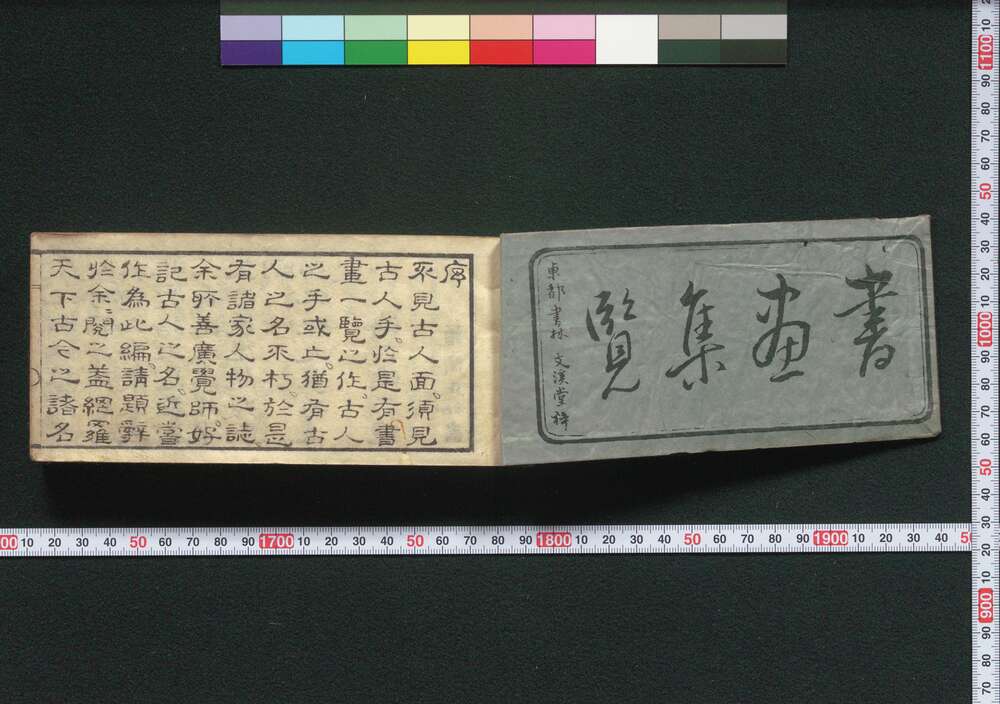 書画集覧
東都書林 文溪堂梓
序
不見古人面。須見
古人手。於是有書
畫一覽之作。古人
之手或亡。猶有古
人之名不朽。於是
有諸家人物之誌
余所善廣覺師。好
記古人之名。近嘗
作為此編。請題辭
於余〻閲之。蓋網羅
天下古今之諸名
00 10 20 30 40 50 60 70 80 90 1700 10 20 30 40 50 60 70 80 90 1800 10 20 30 40 50 60 70 80 90 1900 10 20 30 40 5
10 1100 90 80 70 60 50 40 30 20 10 1000 90 80 70 60 50 40 30 20 10 900 90 80 70